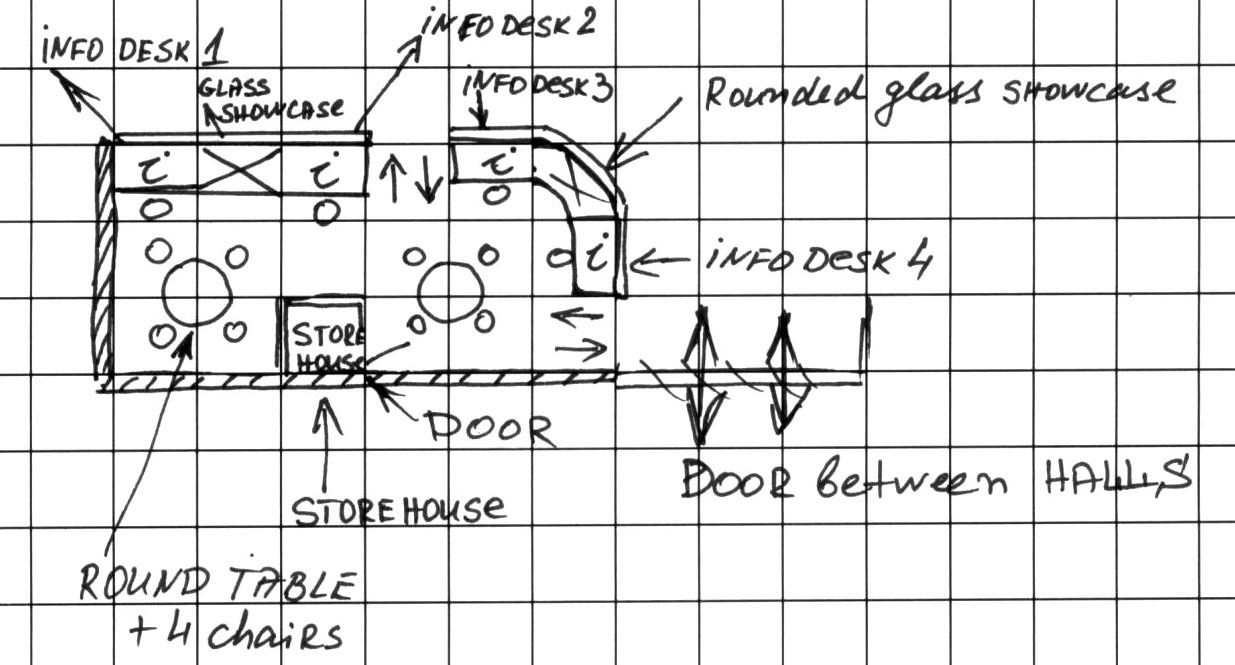 iNFO DESK 1
iNFO DESK 2
GLASS
SHOWCASE
iNFO DESK 3
Rounded glass SHOWCASE
i
i
i
i
iNFO DESK 4
STORE
HOUSE
DOOR
DOOR between HALLS
STOREHOUSE
ROUND TABLE
+ 4 chAiRS